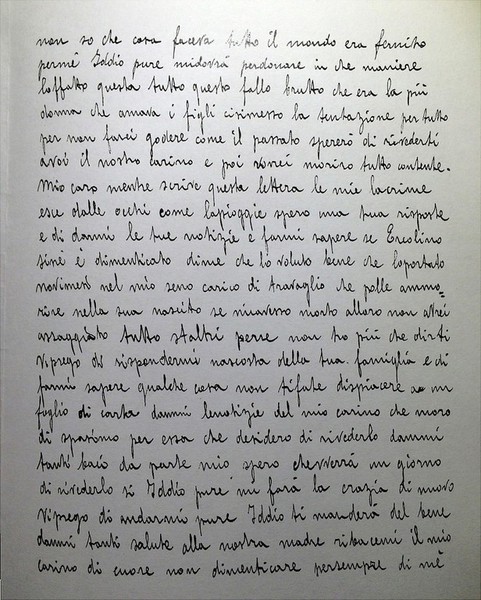 non so che cora faceva tutto il mondo era fernito
permé Iddio pure midovrá perdonare in che maniere
loffatto questa tutto questo fallo brutto che era la piú
donna che amava i figli cirimesso la tentazione per tutto
per non farci godere come il passato spereró di rivederti
avoi il nostro carino e poi vorrei moriro tutto contente.
Mio caro mentre scrive questa lettera le mie lacrime
esce dalle occhi come lapioggie spero una tua risposte
e di darmi le tue notizie e farmi sapere se Ercolino
sině é dimenticato dime che ló voluto bene che loportato
novimesi nel mio seno carico di travaglio che polle ammo=
rire nella sua nascito se micaverso morto alloro non avrei
assaggiato tutto staltri pene non ho piú che dirti
Viprego di rispondermi nascosta della tua famiglia e di
farmi sapere qualche cosa non tifate dispiacere un
foglio di carta dammi lenotizie del mio carino che moro
di sparimo per essa che desidero di rivederlo dammi
tanti bacio da parte mio spero cheverrá un giorno
di rivederlo si Iddio pure mi fará la crazia di nuovo
Viprego di andarmi pure Iddio ti manderá del bene
dammi tanti salute alla nostra madre ribacemi il mio
carino di cuore non dimenticare persempre di mě